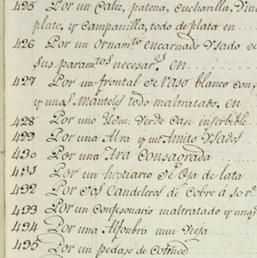 425 Por un Caliz, patena, cucharilla, Vina
plato, y Campanilla, todo de plata en
426 Por un ornamto encarnado Usado c
sus paramtos necesars en
427 Por un frontal de Raso blanco con
y unas Manteles todo maltratado, en
428 Por uno Idem. Verde casi inservible
429 Por una Alva y un Amito Usados
430 Por una Ara Consagrada
431 Por un hostiario de Oja de lata
432 Por dos Candeleros de Cobre á 50 rs
433 Por un Confesonario maltratado y una
434 Por una Alfombra muy vieja
435 Por un pedazo de